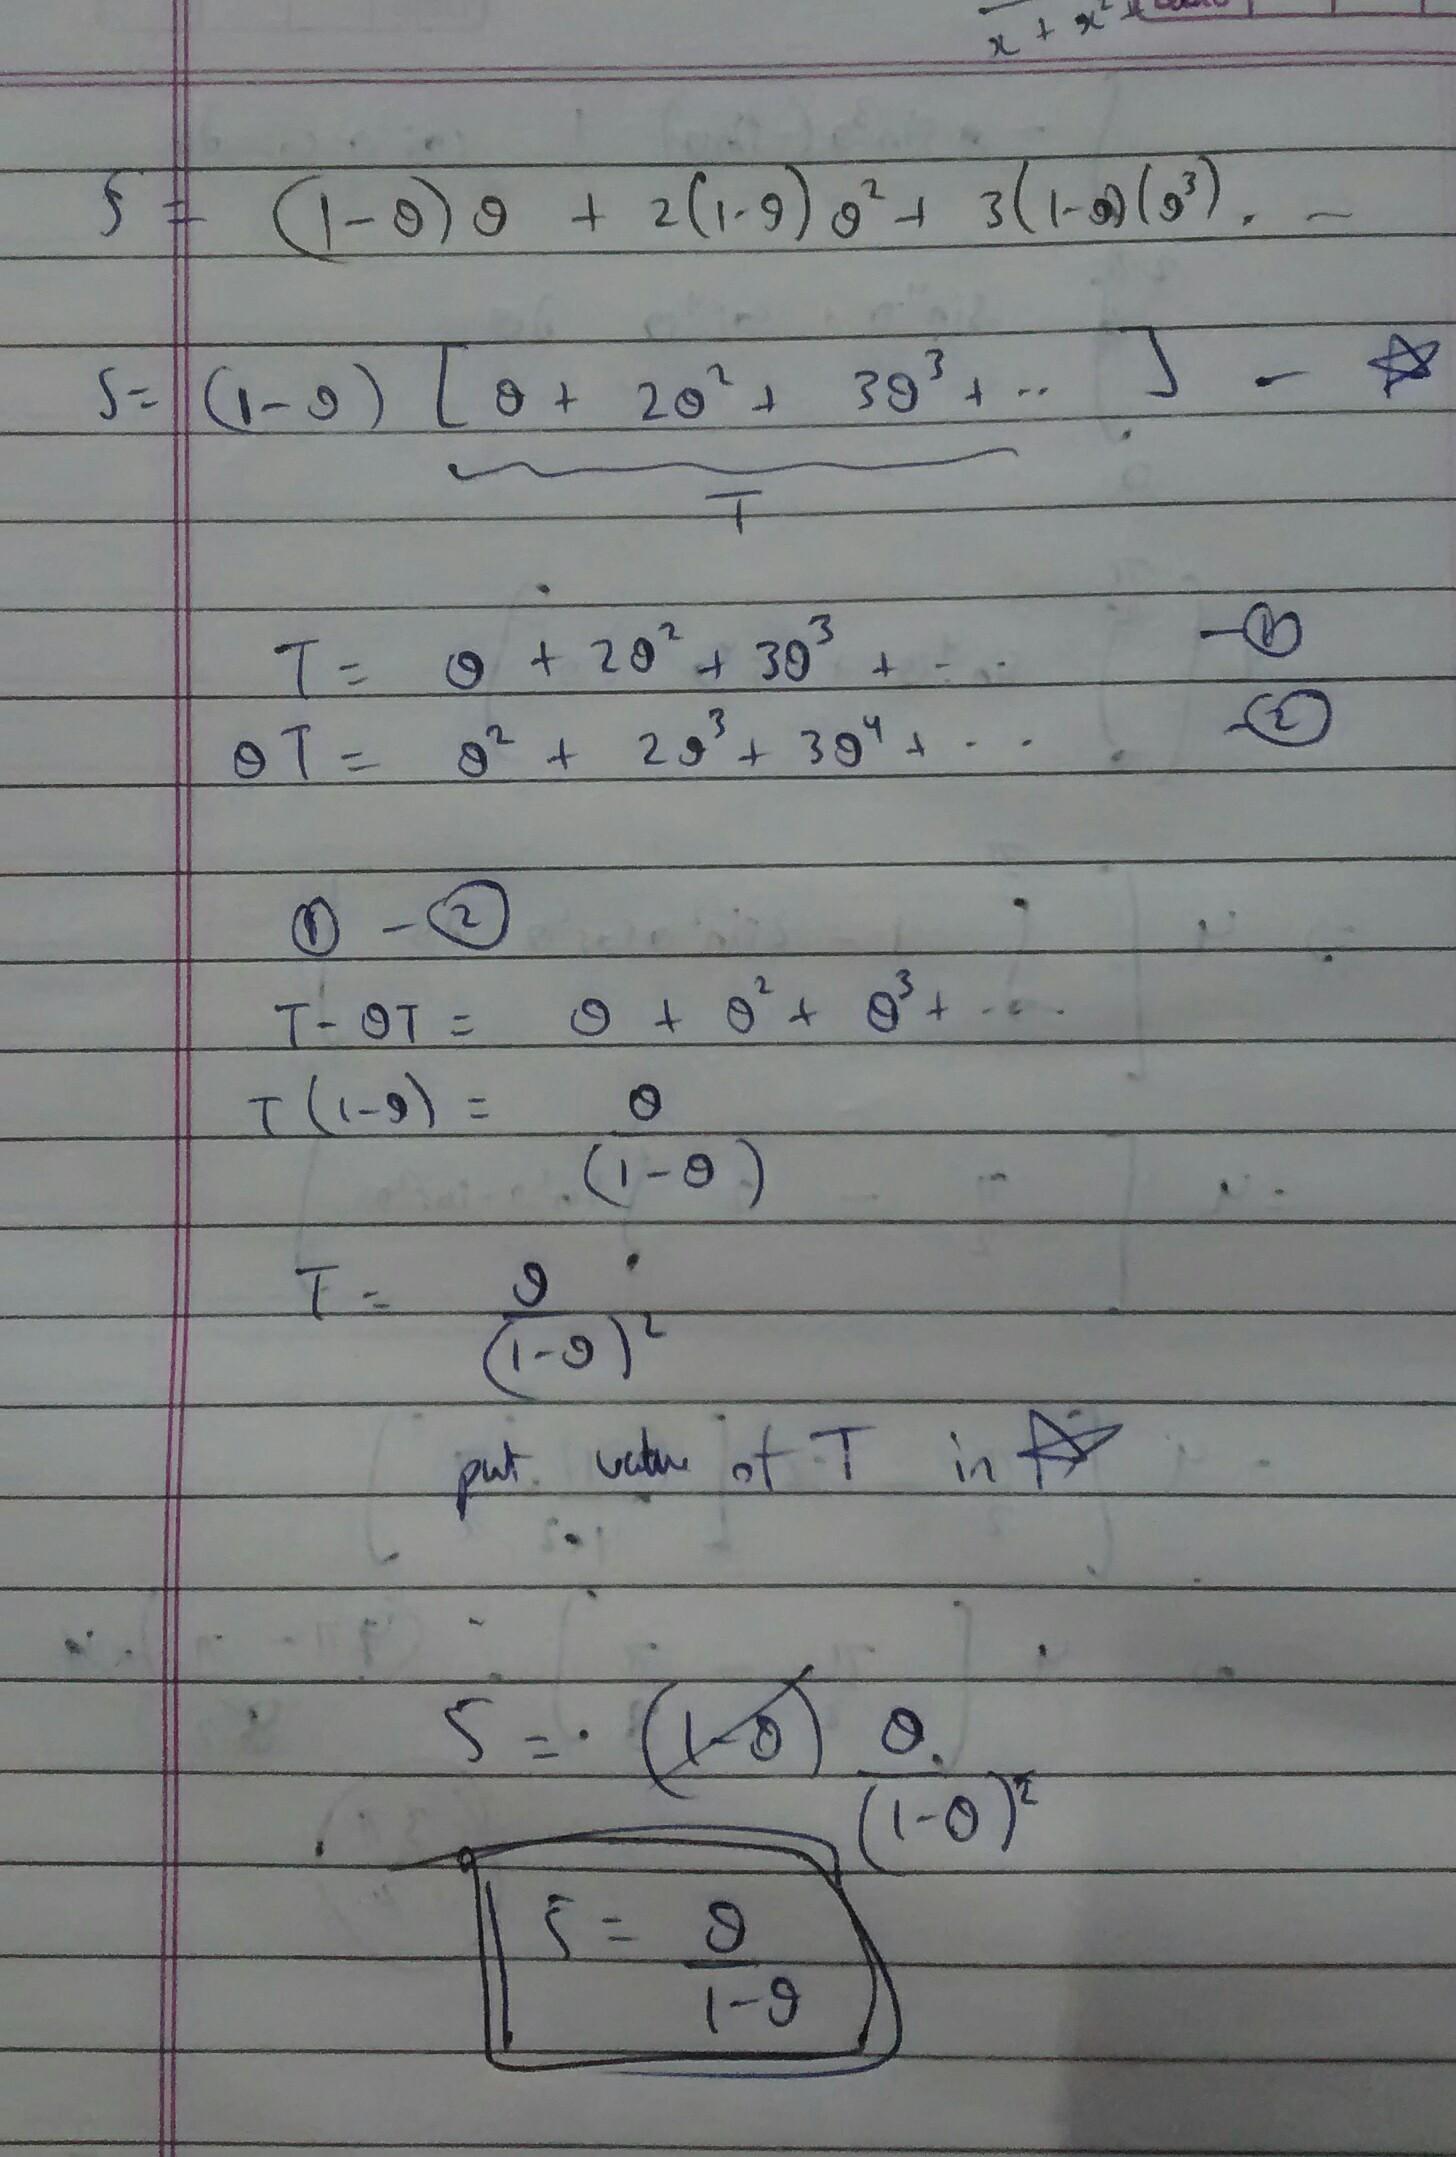 x + x² +
S = (1-θ)θ + 2(1-θ)θ² + 3(1-θ)(θ³). . _
S = (1-θ) [ θ + 2θ² + 3θ³ + .. ] - ☆
T
T = θ + 2θ² + 3θ³ + - .. -①
θT = θ² + 2θ³ + 3θ⁴ + - .. -②
① - ②
T - θT = θ + θ² + θ³ + ....
T(1-θ) = θ
(1-θ)
T = θ
(1-θ)²
put value of T in ☆
S = (1-θ) θ
(1-θ)²
S = θ
1-θ